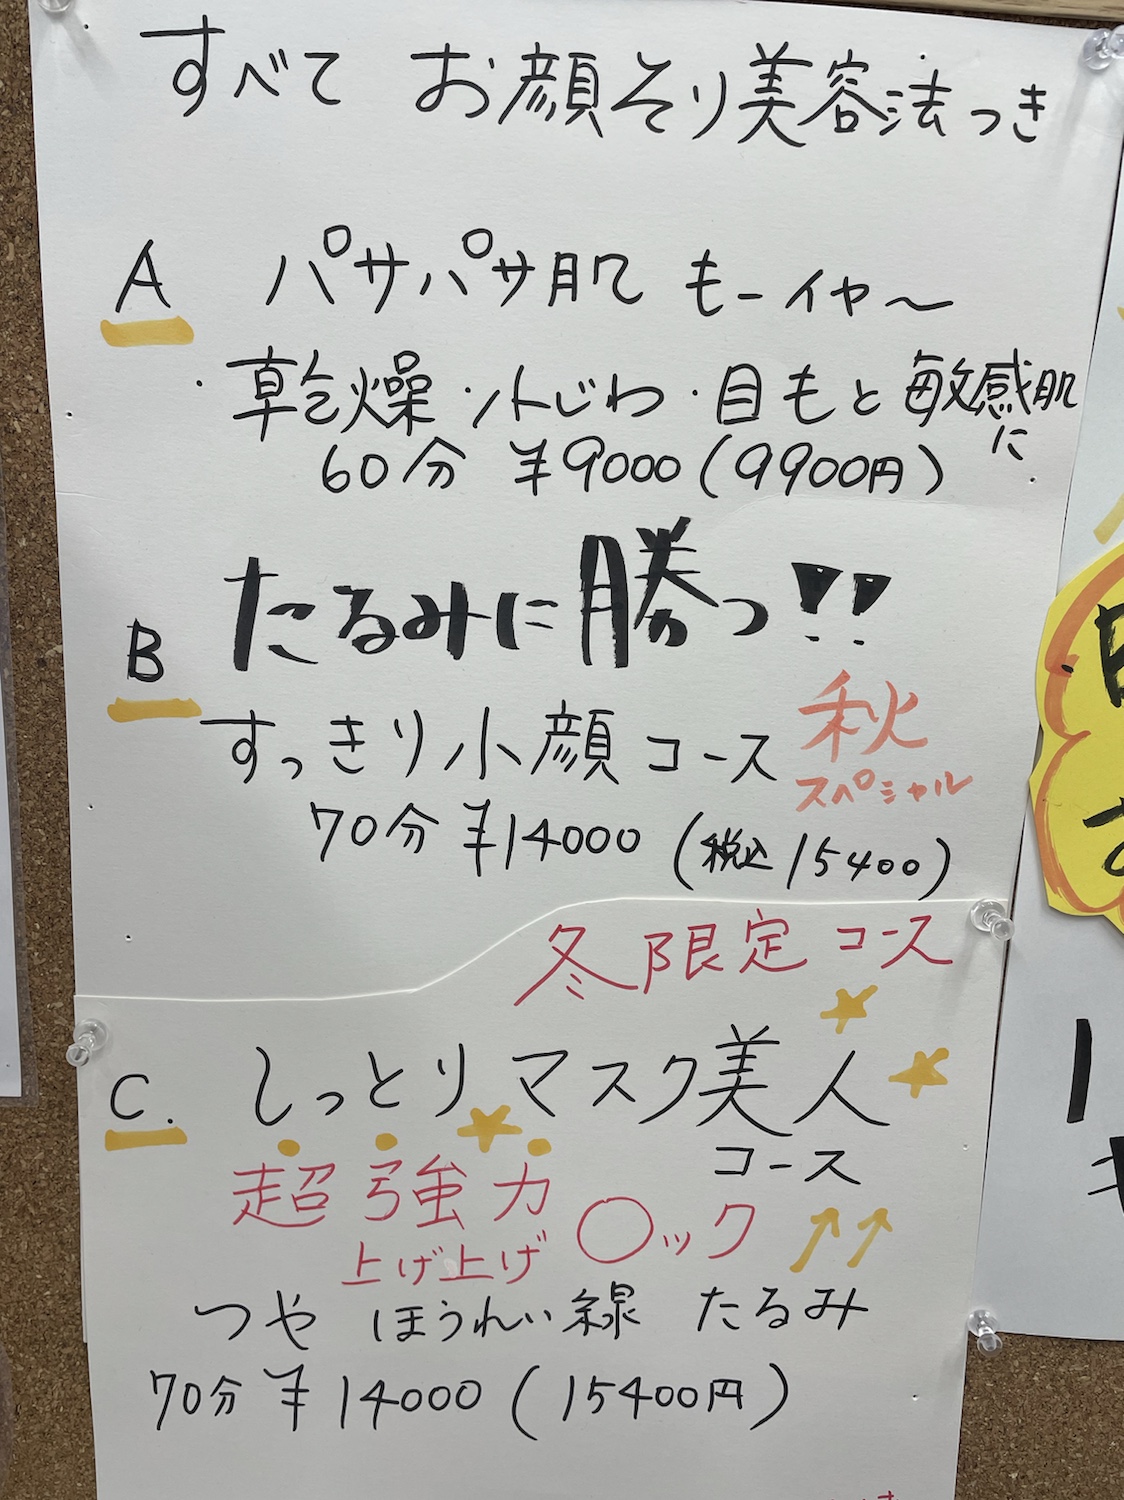 すべて お顔そり美容法つき
A パサパサ肌 もーイヤ〜
・乾燥・小じわ・目もと敏感肌に
60分 ¥9000(9900円)
B たるみに勝つ!!
すっきり小顔コース
秋
スペシャル
70分 ¥14000 (税込 15400)
冬限定コース
C. しっとりマスク美人
コース
超強力
上げ上げ ○ック ↑↑
つや ほうれい線 たるみ
70分 ¥14000 (15400円)